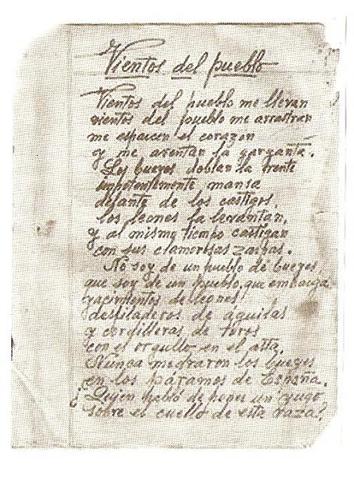 Vientos del pueblo
Vientos del pueblo me llevan
vientos del pueblo me arrastran
me esparcen el corazon
y me aventan la garganta.
Los bueyes doblan la frente
impotentemente mansa
delante de los castigos,
los leones la levantan,
y al mismo tiempo castigan
con sus clamorosas zarpas.
No soy de un pueblo de bueyes
que soy de un pueblo que embarga
yacimientos de leones
desfiladeros de águilas
y cordilleras de toros
con el orgullo en el asta.
Nunca medraron los bueyes
en los páramos de España.
¿Quien habló de poner un yugo
sobre el cuello de esta raza?